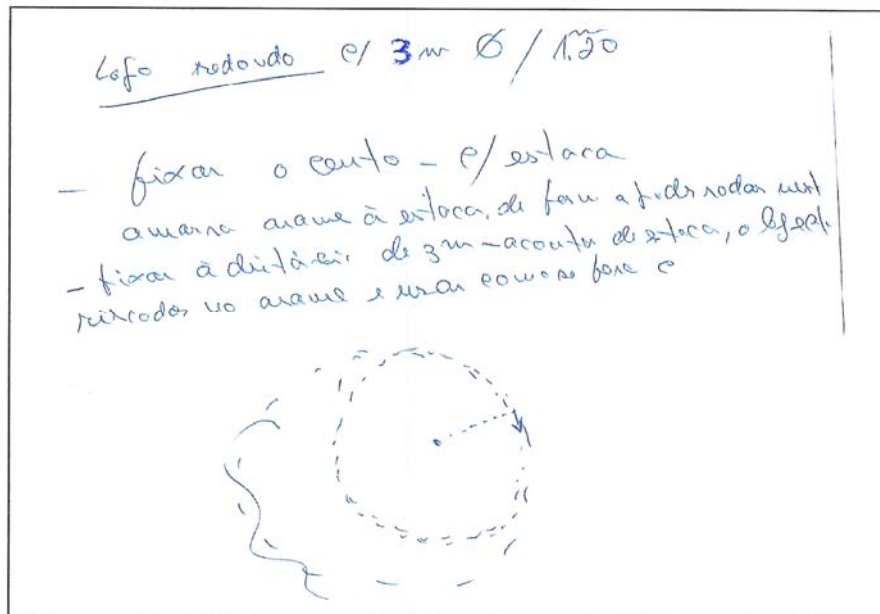 Lago redondo c/ 3 m Ø / 1.20 m
- fixar o cento - c/ estaca
amarra arame à estaca, de form a poder rodar
- fixar à distância de 3 m - a contar de estaca, o
riscador no arame e usar como se fosse